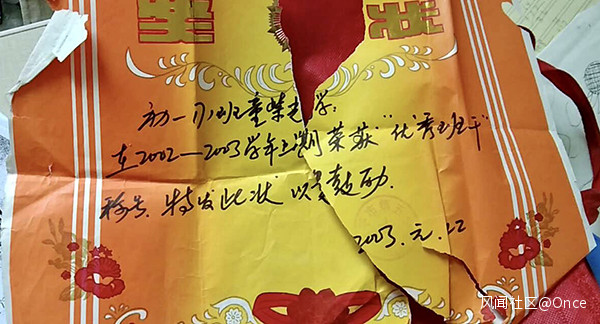 奖状
初一 班 同学：
在2002—2003学年上期荣获"优秀班干"
称号，特发此状 以资鼓励．
2003．元．12
风闻社区@Once